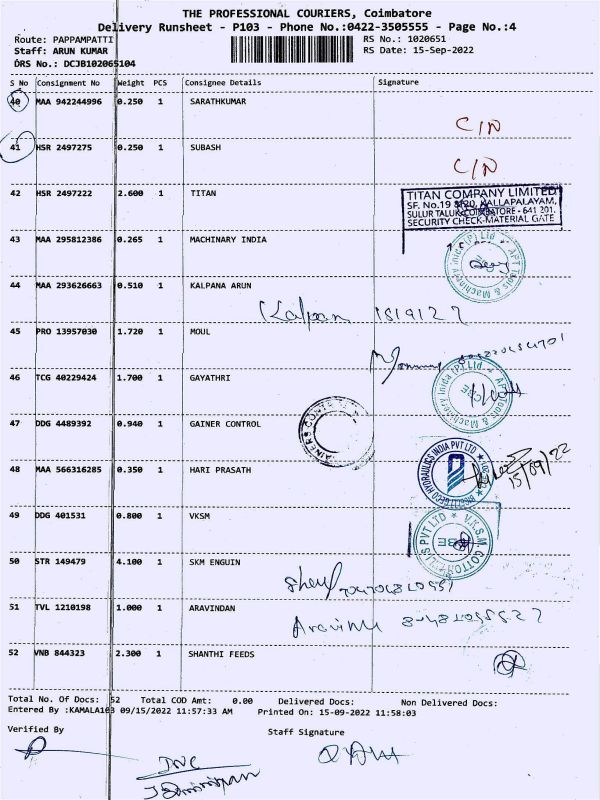 THE PROFESSIONAL COURIERS, Coimbatore
Delivery Runsheet - P103 - Phone No.:0422-3505555 - Page No.:4
Route: PAPPAMPATTI
RS No.: 1020651
Staff: ARUN KUMAR
RS Date: 15-Sep-2022
DRS No.: DCJB102065104
S No Consignment No Weight PCS Consignee Details Signature
40 MAA 942244996 0.250 1 SARATHKUMAR
C/N
41 HSR 2497275 0.250 1 SUBASH
C/N
42 HSR 2497222 2.600 1 TITAN
TITAN COMPANY LIMITED
SF. No.19 KALLAPALAYAM,
SULUR TALUK, COIMBATORE - 641 201.
SECURITY CHECK-MATERIAL GATE
43 MAA 295812386 0.265 1 MACHINARY INDIA
APT Tools & Machinery India (P) Ltd
44 MAA 293626663 0.510 1 KALPANA ARUN
Kalpan
45 PRO 13957030 1.720 1 MOUL
46 TCG 40229424 1.700 1 GAYATHRI
APT Tools & Machinery India (P) Ltd
47 DDG 4489392 0.940 1 GAINER CONTROL
48 MAA 566316285 0.350 1 HARI PRASATH
HYDRAULICS INDIA PVT LTD
15/09/22
49 DDG 401531 0.800 1 VKSM
V.K.S.M. COTTON MILLS PVT LTD
50 STR 149479 4.100 1 SKM ENGUIN
51 TVL 1210198 1.000 1 ARAVINDAN
52 VNB 844323 2.300 1 SHANTHI FEEDS
Total No. Of Docs: 52 Total COD Amt: 0.00 Delivered Docs: Non Delivered Docs:
Entered By :KAMALA103 09/15/2022 11:57:33 AM Printed On: 15-09-2022 11:58:03
Verified By
Staff Signature